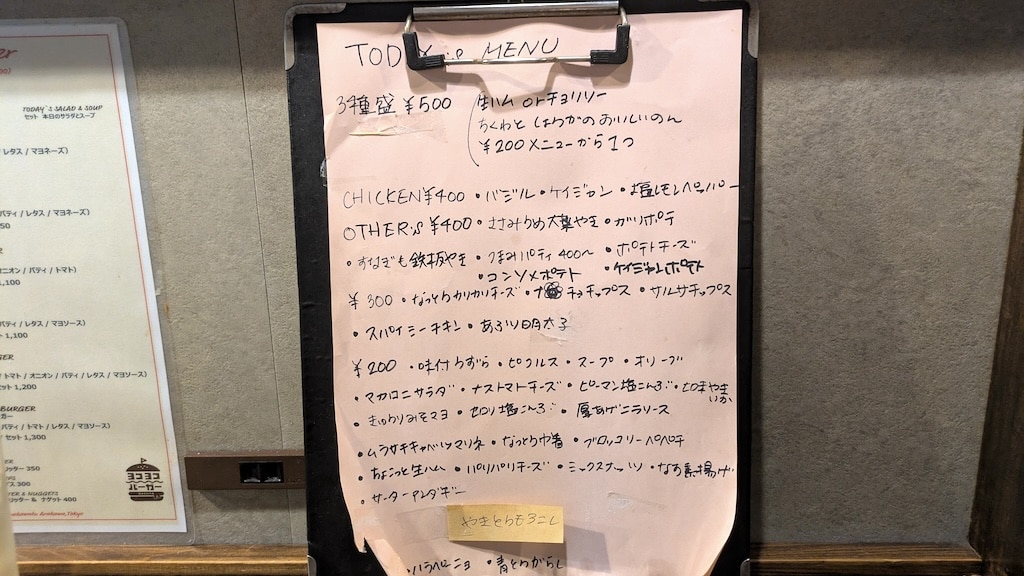 TODAY is MENU
3種盛 ¥500
生ハム orチョリソー
ちくわと しょうがの おいしいのん
¥200メニューから1つ
CHICKEN¥400 ・バジル ・ケイジャン ・塩レモンペッパー
OTHER's ¥400 ・ささみうめ大葉やき ・ガリポテ
・すなぎも鉄板やき ・つまみパティ 400〜 ・ポテトチーズ
・コンソメポテト ・ケイジャンポテト
¥300 ・なっとうカリカリチーズ ・チョチップス ・サルサチップス
・スパイシーチキン ・あぶり明太子
¥200 ・味付うずら ・ピクルス ・スープ ・オリーブ
・マカロニサラダ ・ナストマトチーズ ・ピーマン塩こんぶ ・七味やきいか
・きゅうりみそマヨ ・セロリ塩こんぶ ・厚あげニラソース
・ムラサキキャベツマリネ ・なっとう巾着 ・ブロッコリーペペチ
・ちょこっと生ハム ・パリパリチーズ ・ミックスナッツ ・なす素揚げ
・サーターアンダギー
やきとうもろこし
・ハラペーニョ ・青とうがらし
TODAY'S SALAD & SOUP
セット 本日のサラダとスープ
レタス / マヨネーズ)
パティ / レタス / マヨネーズ)
オニオン / パティ / トマト)
1,100
パティ / レタス / マヨソース)
1,100
トマト / オニオン / パティ / レタス / マヨソース)
セット 1,200
BURGER
パティ / トマト / レタス / マヨソース)
セット 1,300
350
300
& NUGGETS
& ナゲット 400
ヨコヨコ
バーガー